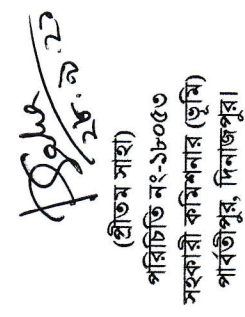 ২৮.৯.২১
(প্রীতম সাহা)
পরিচিতি নং-১৮০৫৩
সহকারী কমিশনার (ভূমি)
পার্বতীপুর, দিনাজপুর।